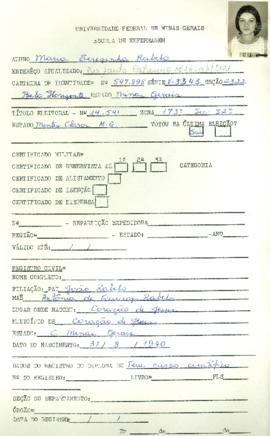 UNIVERSIDADE FEDERAL DE MINAS GERAIS
ESCOLA DE ENFERMAGEM
ALUNO Maria Terezinha Rabelo
ENDEREÇO ATUALIZADO:
CARTEIRA DE IDENTIDADE: Nº 547.898 SÉRIE SEÇÃO
Belo Horizonte ESTADO Minas Gerais
TÍTULO ELEITORAL - Nº 14.541 ZONA 173ª
ESTADO Montes Claros M.G. VOTOU NA ÚLTIMA ELEIÇÃO?
Sim
CERTIFICADO MILITAR=
1ª 2ª 3ª
CERTIFICADO DE RESERVISTA CATEGORIA
CERTIFICADO DE ALISTAMENTO
CERTIFICADO DE ISENÇÃO
CERTIFICADO DE DISPENSA
Nº - REPARTIÇÃO EXPEDIDORA
REGIÃO= - ESTADO: - ANO-
VÁLIDO ATÉ: / /
REGISTRO CIVIL=
NOME COMPLETO:
FILIAÇÃO: PAI João Rabelo
MÃE Antônia de Queiroz Rabelo
LUGAR ONDE NASCEU: Coração de Jesus
MUNICÍPIO DE Coração de Jesus
ESTADO: Minas Gerais
DATA DO NASCIMENTO: 31/ 8 / 1940
DADOS DO REGISTRO DO DIPLOMA DE curso científico
Nº DO REGISTRO: LIVRO= FLS
SEÇÃO DO DEPARTAMENTO:
ÓRGÃO=
DATA DO REGISTRO / /
de de